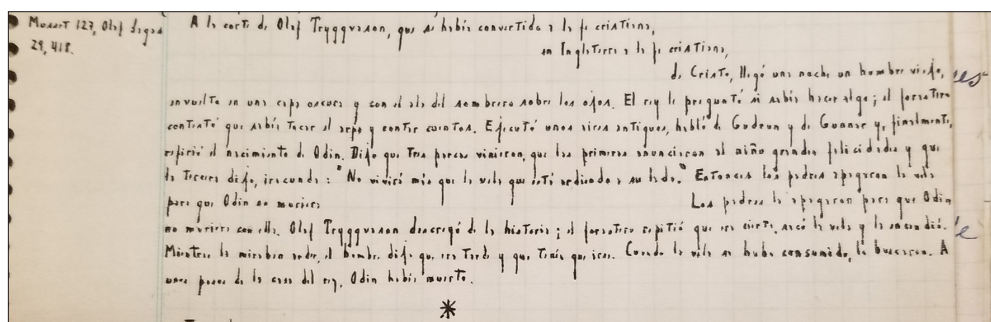 Mosset 127, Olaf Sagas
29, 418.
A la corte de Olaf Tryggvason, que se había convertido a la fe cristiana,
en Inglaterra a la fe cristiana,
de Cristo, llegó una noche un hombre viejo,
envuelto en una capa oscura y con el ala del sombrero sobre los ojos. El rey le preguntó si sabía hacer algo; el forastero
contestó que sabía tocar el arpa y contar cuentos. Ejecutó unos aires antiguos, habló de Gudrun y de Gunnar y, finalmente,
refirió el nacimiento de Odin. Dijo que tres parcas vinieron, que las primeras anunciaron al niño grandes felicidades y que
la tercera dijo, iracunda: "No vivirá más que la vela que está ardiendo a su lado." Entonces los padres apagaron la vela
para que Odin no muriera
Los padres la apagaron para que Odin
no muriera con ella. Olaf Tryggvason descreyó de la historia; el forastero repitió que era cierta, sacó la vela y la encendió.
Mientras la miraban arder, el hombre dijo que era tarde y que tenía que irse. Cuando la vela se hubo consumido, lo buscaron. A
unos pasos de la casa del rey, Odin había muerto.